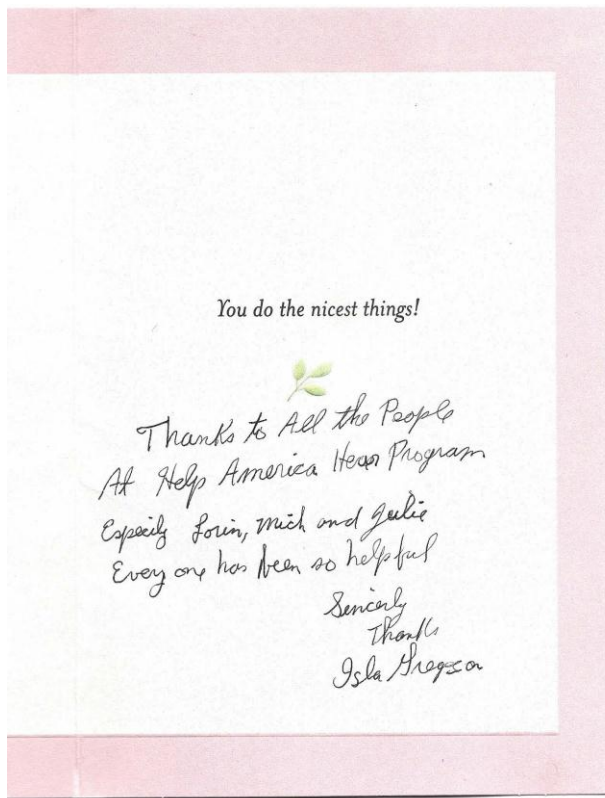 You do the nicest things!
Thanks to All the People
At Help America Hear Program
Especily Lorin, Mich and Julie
Every one has been so helpful
Sencerly
Thanks
Isla Gregson